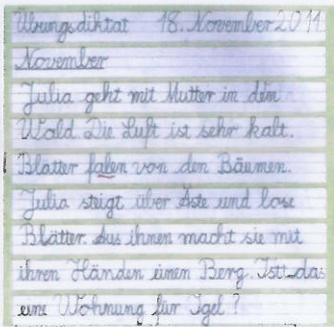 Übungsdiktat 18. November 2011
November
Julia geht mit Mutter in den
Wald. Die Luft ist sehr kalt.
Blätter falen von den Bäumen.
Julia steigt über Äste und lose
Blätter. Aus ihnen macht sie mit
ihren Händen einen Berg. Ist das
eine Wohnung für Igel?